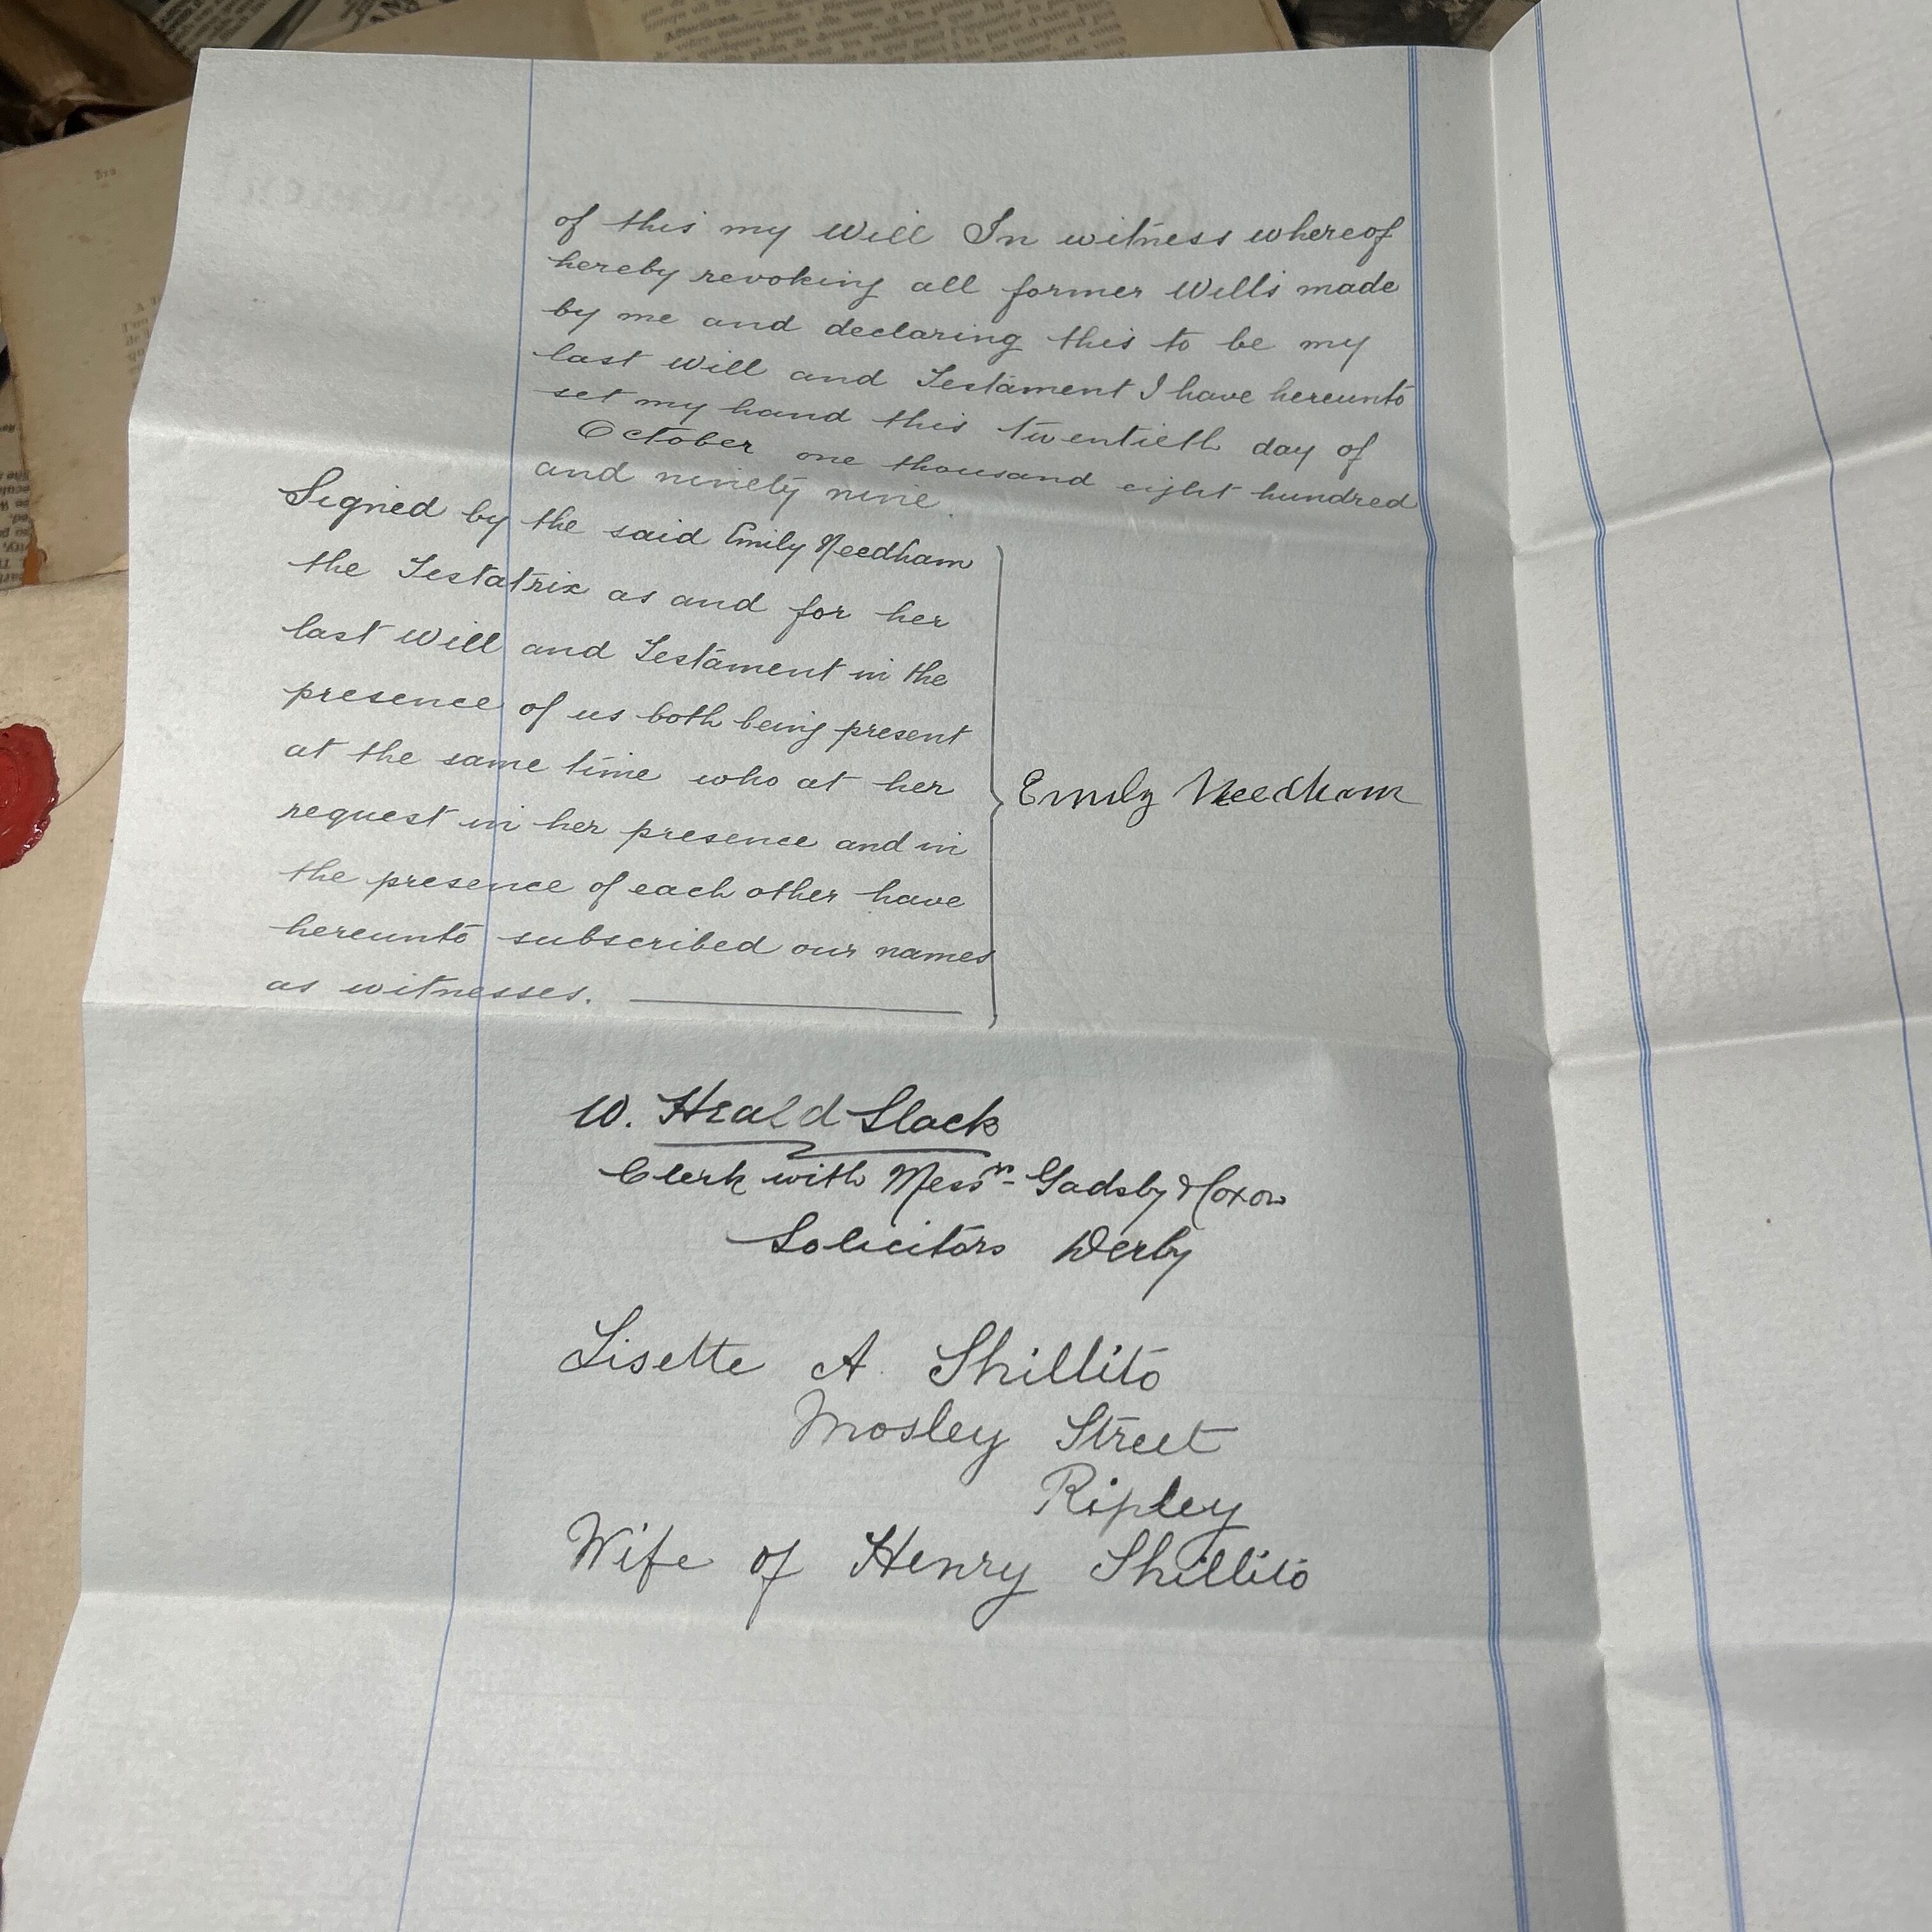 of this my Will In witness whereof
hereby revoking all former Wills made
by me and declaring this to be my
last Will and Testament I have hereunto
set my hand this twentieth day of
October one thousand eight hundred
and ninety nine.
Signed by the said Emily Needham
the Testatrix as and for her
last Will and Testament in the
presence of us both being present
at the same time who at her
request in her presence and in
the presence of each other have
hereunto subscribed our names
as witnesses.
Emily Needham
W. Heald Slack
Clerk with Messrs Gadsby & Coxon
Solicitors Derby
Lisette A. Shillito
Mosley Street
Ripley
Wife of Henry Shillito